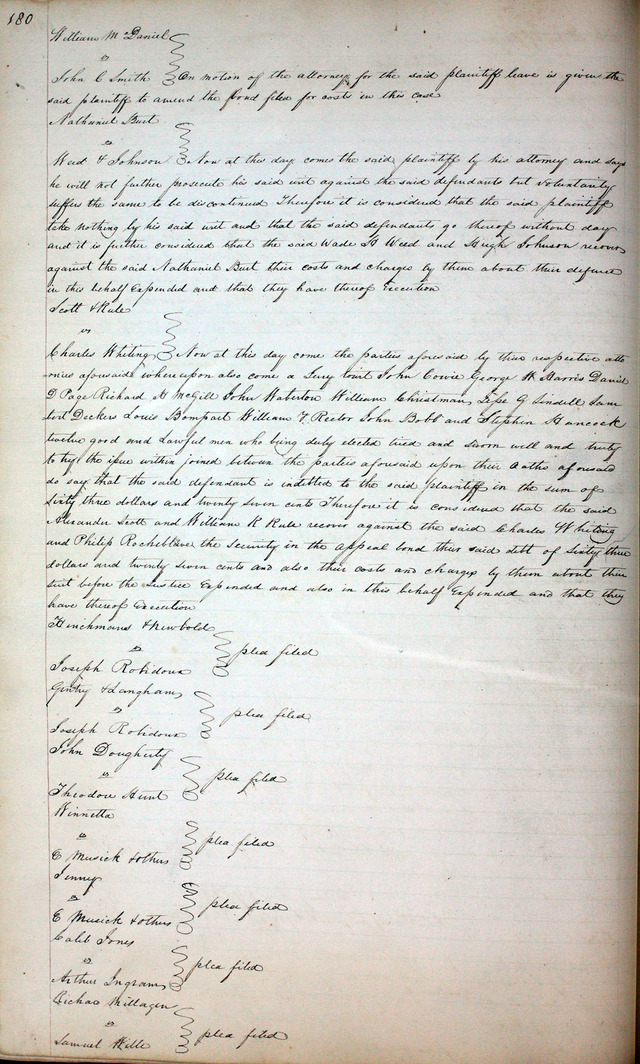 180
William McDaniel
vs
John C Smith On motion of the attorney for the said plaintiff leave is given the
said plaintiff to amend the bond filed for costs in this case
Nathaniel Burt
vs
Weed & Johnson Now at this day comes the said plaintiff by his attorney and says
he will not further prosecute his said suit against the said defendants but voluntarily
suffers the same to be discontinued Therefore it is considered that the said plaintiff
take nothing by his said writ and that the said defendants go thereof without day
and it is further considered that the said Wade H Weed and Hugh Johnson recover
against the said Nathaniel Burt their costs and charges by them about their defence
in this behalf Expended and that they have thereof Execution
Scott & Rule
vs
Charles Whiting Now at this day come the parties aforesaid by their respective atto
ornies aforesaid whereupon also come a Jury towit John Cowie George W Harris Daniel
D Page Richard H McGill John Waberton William Christman Jesse G Lindell Sam
Deckers Louis Bompart William T Rector John Bobb and Stephen Hancock
twelve good and Lawful men who being duly elected tried and sworn well and truly
to try the issue within joined between the parties aforesaid upon their Oaths aforesaid
do say that the said defendant is indebted to the said plaintiff in the sum of
sixty three dollars and twenty seven cents Therefore it is considered that the said
Alexander Scott and William K Rule recover against the said Charles Whiting
and Philip Rocheblave the security in the appeal bond their said debt of sixty three
dollars and twenty seven cents and also their costs and charges by them about their
suit before the Justice Expended and also in this behalf Expended and that they
have thereof Execution
Hinchmans & Newbold
vs plea filed
Joseph Robidoux
Gentry & Langhams
vs plea filed
Joseph Robidoux
John Dougherty
vs plea filed
Theodore Hunt
Winnetta
vs plea filed
E Musick & others
Jenney
vs plea filed
E Musick & others
Caleb Jones
vs plea filed
Arthur Ingrams
Millagen
vs plea filed
Samuel Wille